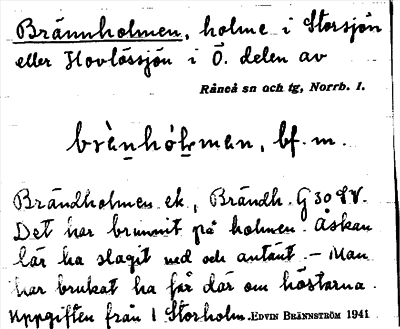 Brännholmen, holme i Storsjön
eller Hovlössjön i Ö. delen av
Råneå sn och tg, Norrb. l.
brènhól̥man, bf. m.
Brändholmen ek, Brändh. G 30 SV.
Det har brunnit på holmen. Åskan
lär ha slagit ned och antänt. – Man
har brukat ha får där om höstarna.
Uppgiften från 1 Storholm. EDVIN BRÄNNSTRÖM 1941